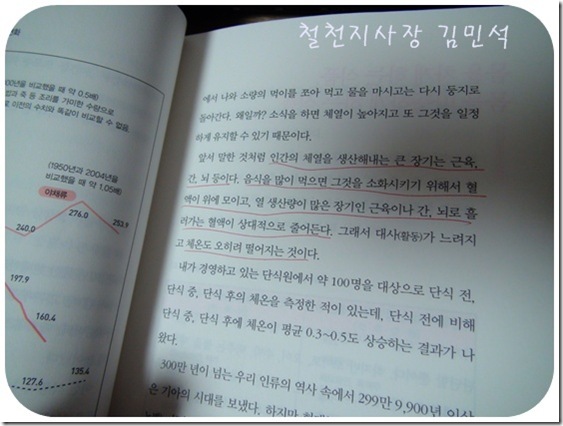 철천지사장 김민석
00년을 비교했을 때 약 0.5배)
(1950년과 2004년을
비교했을 때 약 1.05배)
야채류
276.0
253.9
240.0
197.9
160.4
135.4
127.6
에서 나와 소량의 먹이를 쪼아 먹고 물을 마시고는 다시 둥지로
돌아간다. 왜일까? 소식을 하면 체열이 높아지고 또 그것을 일정
하게 유지할 수 있기 때문이다.
앞서 말한 것처럼 인간의 체열을 생산해내는 큰 장기는 근육,
간, 뇌 등이다. 음식을 많이 먹으면 그것을 소화시키기 위해서 혈
액이 위에 모이고, 열 생산량이 많은 장기인 근육이나 간, 뇌로 흘
러가는 혈액이 상대적으로 줄어든다. 그래서 대사(활동)가 느려지
고 체온도 오히려 떨어지는 것이다.
내가 경영하고 있는 단식원에서 약 100명을 대상으로 단식 전,
단식 중, 단식 후의 체온을 측정한 적이 있는데, 단식 전에 비해
단식 중, 단식 후에 체온이 평균 0.3~0.5도 상승하는 결과가 나
왔다.
300만 년이 넘는 우리 인류의 역사 속에서 299만 9,900년 이상
은 기아의 시대를 보냈다. 하지만